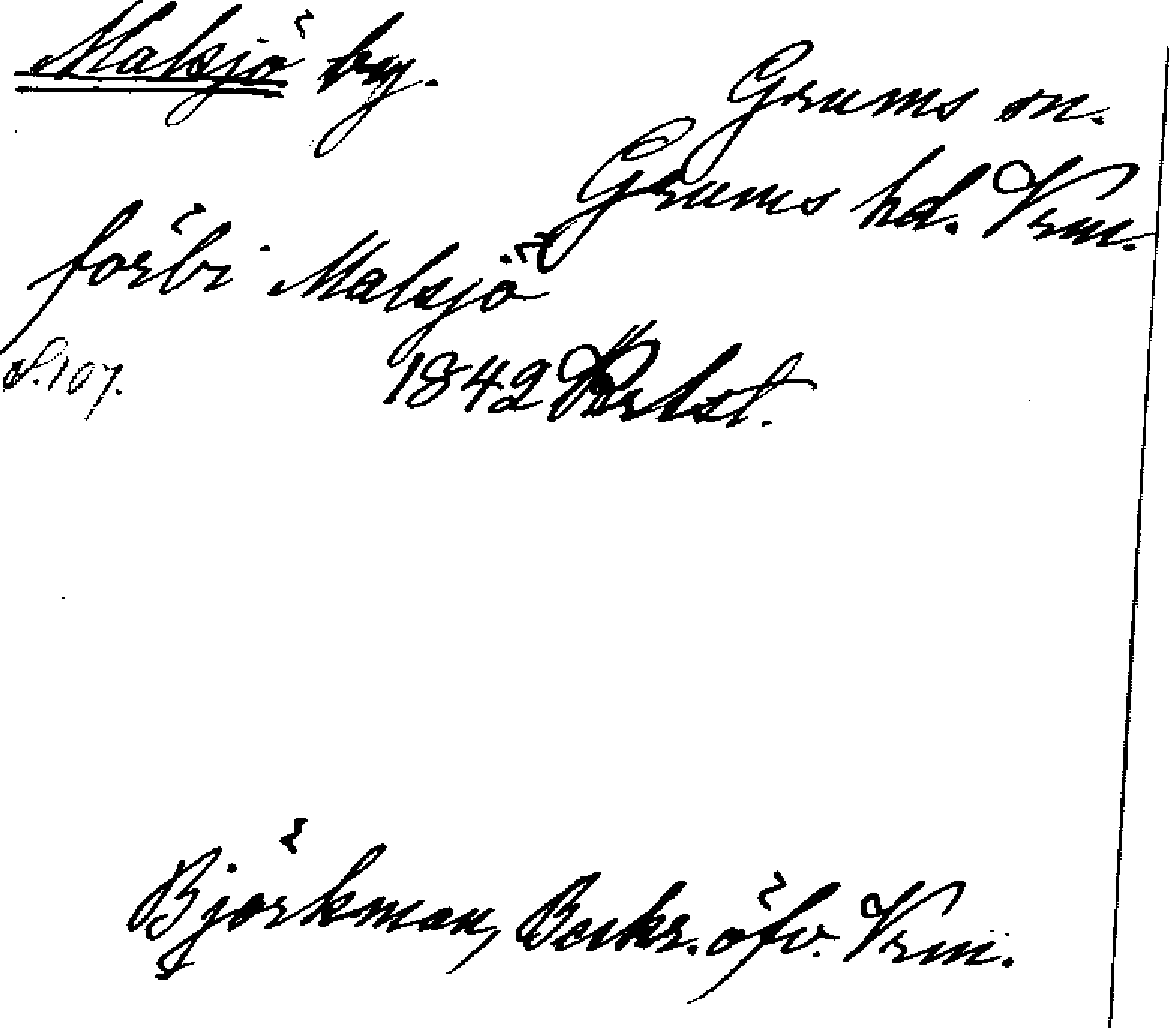 Malsjö by.
Grums sn.
Grums hd. Vrm.
förbi Malsjö
S. 107.
1842
Björkman, Beskr. öfv. Vrm.